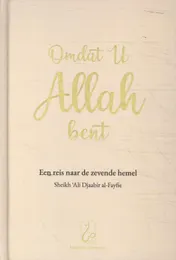 Omdat U
Allah
bent
Een reis naar de zevende hemel
Sheikh 'Ali Djaabir al-Fayfie